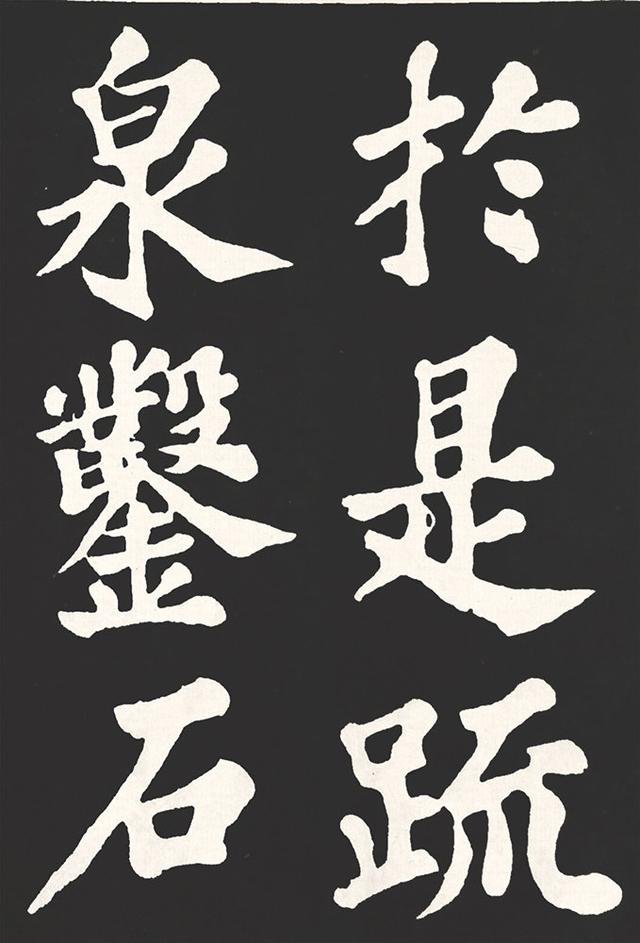 於是疏
泉鑿石